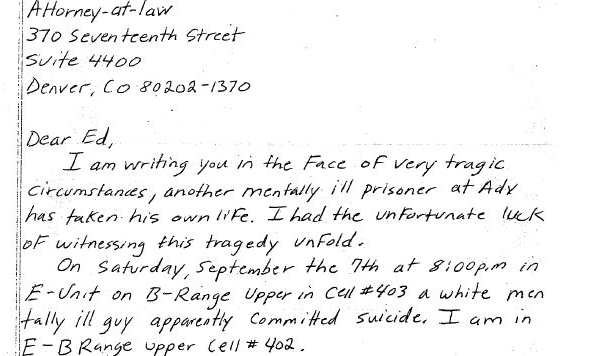 Attorney-at-law
370 Seventeenth Street
Suite 4400
Denver, Co 80202-1370
Dear Ed,
I am writing you in the Face of very tragic
circumstances, another mentally ill prisoner at Adx
has taken his own life. I had the unfortunate luck
of witnessing this tragedy unfold.
On Saturday, September the 7th at 8:00p.m in
E-Unit on B-Range Upper in Cell #403 a white men
tally ill guy apparently committed suicide. I am in
E-B Range upper cell # 402.